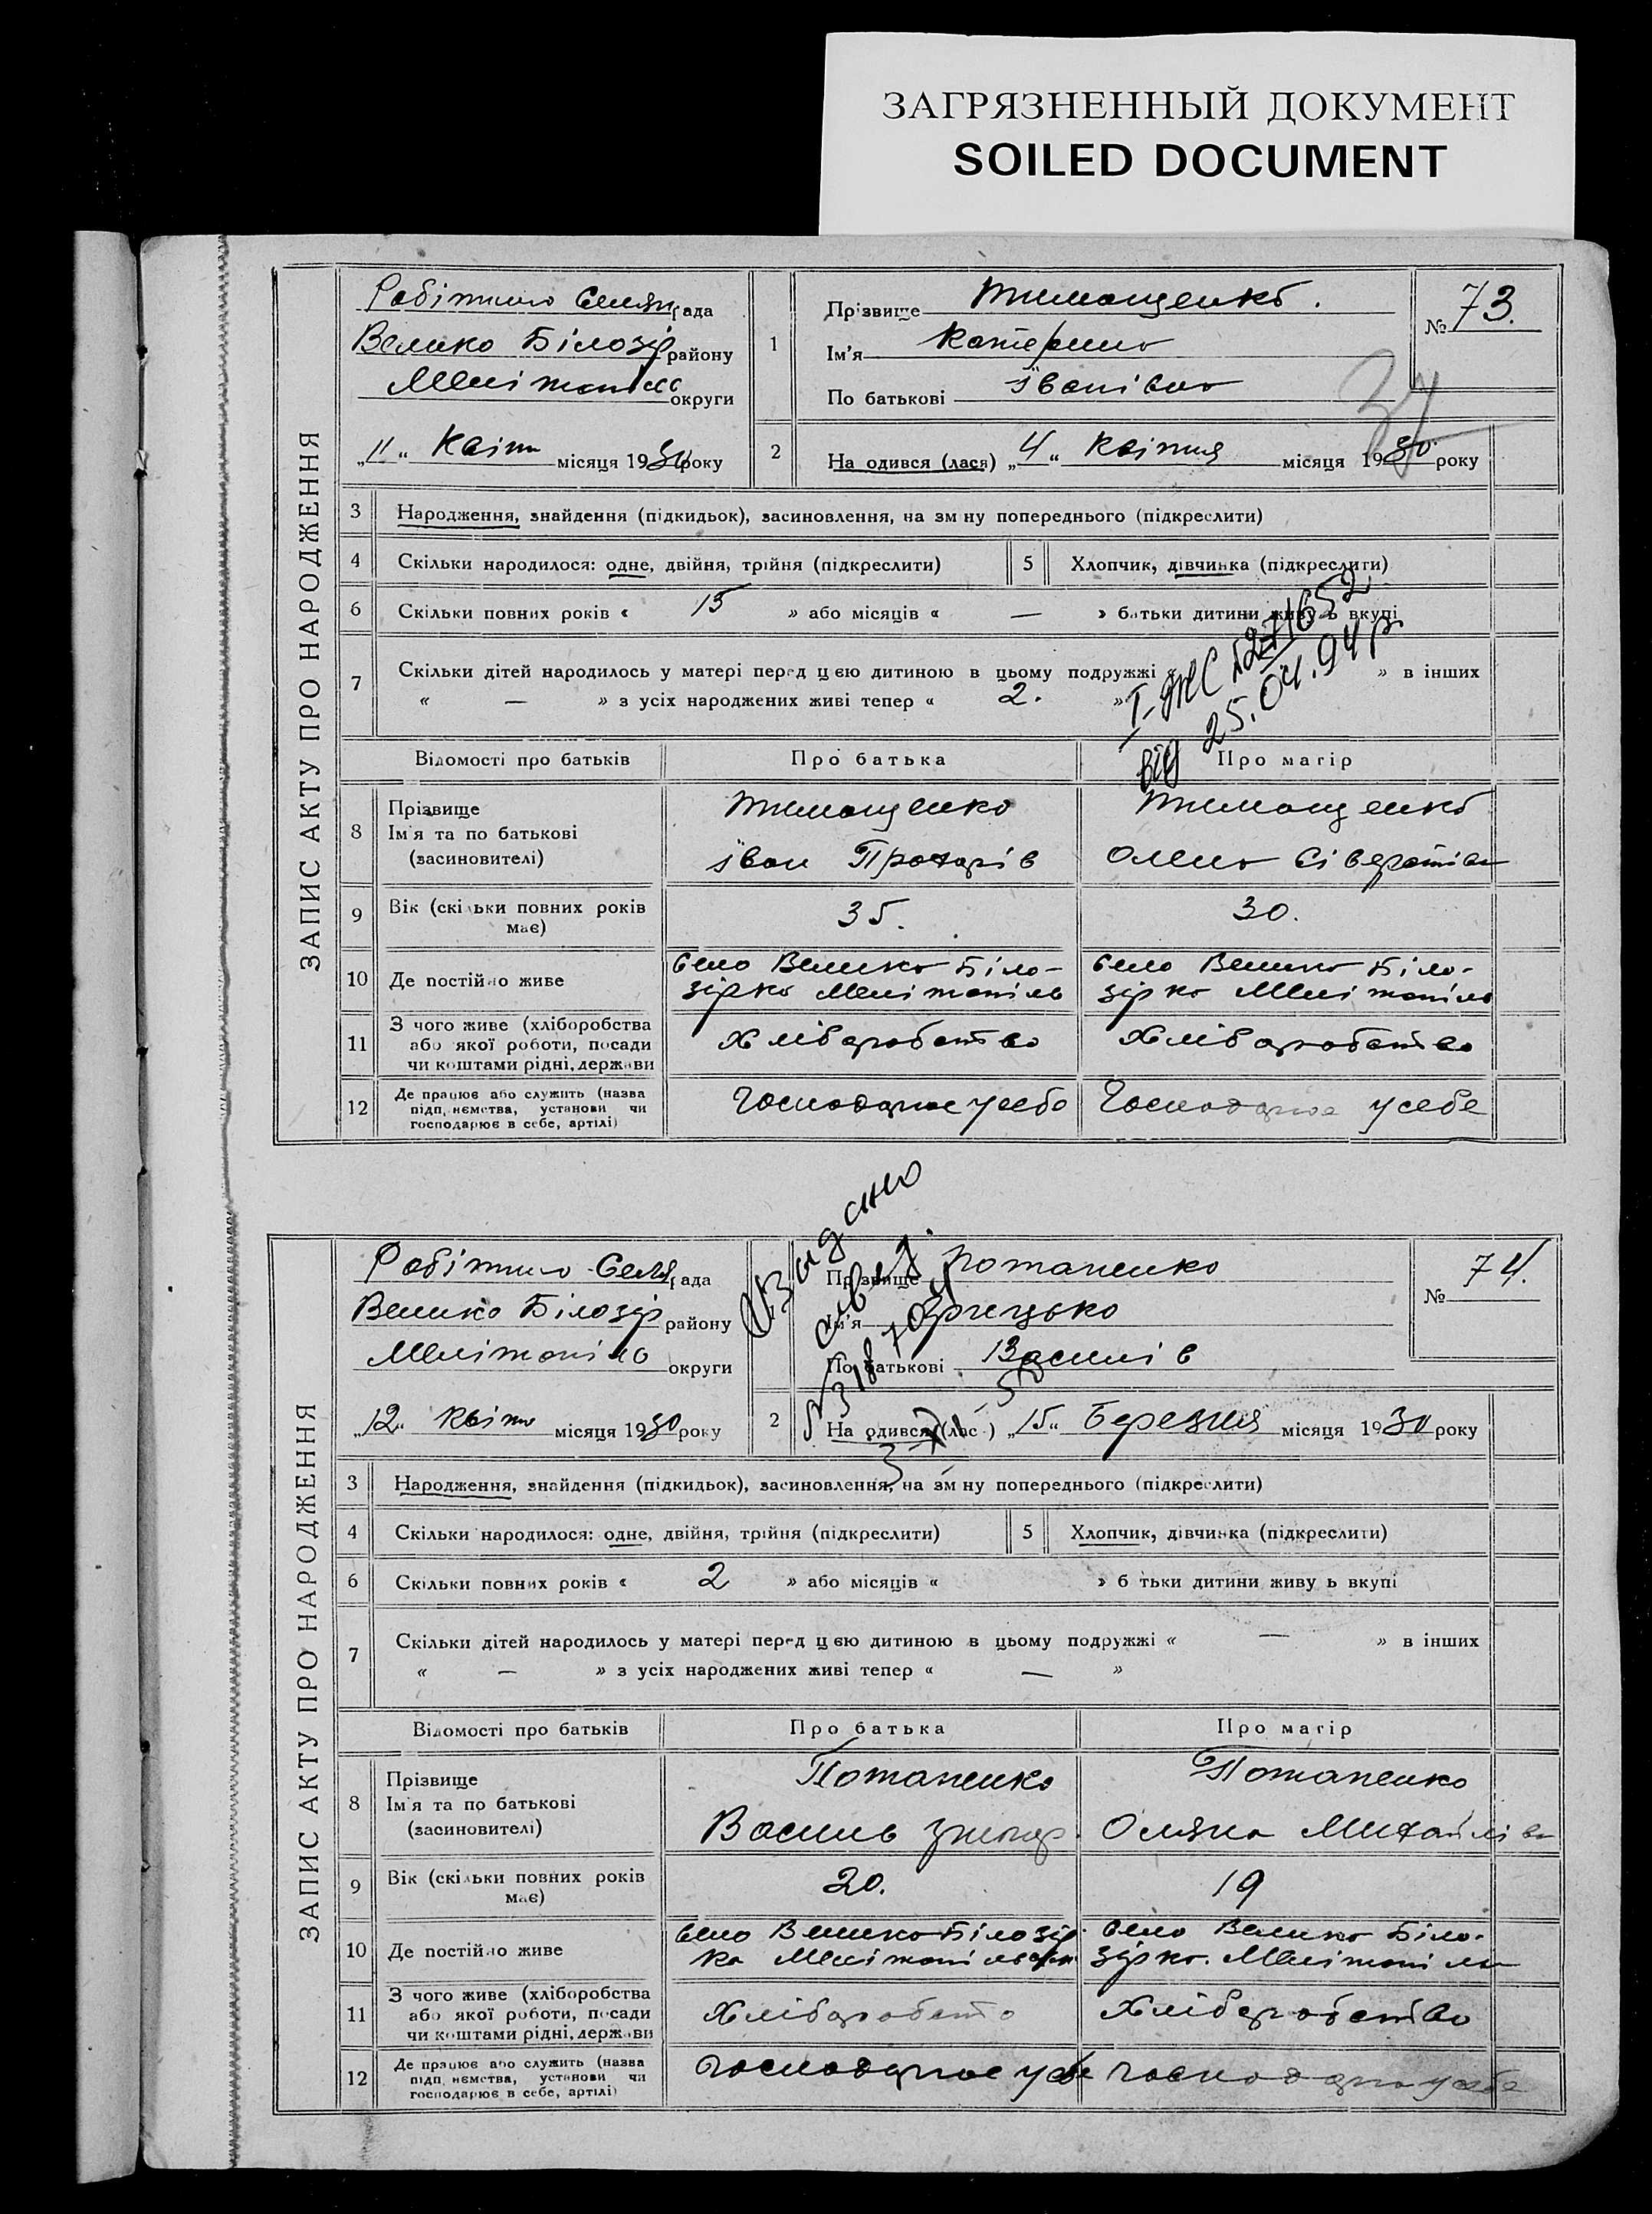 ЗАГРЯЗНЕННЫЙ ДОКУМЕНТ
SOILED DOCUMENT
ЗАПИС АКТУ ПРО НАРОДЖЕННЯ
Робітничо Селян рада
Велико Білозір району
Мелітопіль округи
„11“ Квітн місяця 1930 року
1
Прізвище Тимощенко.
Ім'я Катерина
По батькові Іванівна
№ 73.
37
2 На одився (лася) „4“ Квітня місяця 1930 року
3 Народження, знайдення (підкидьок), засиновлення, на зм ну попереднього (підкреслити)
4 Скільки народилося: одне, двійня, трійня (підкреслити) 5 Хлопчик, дівчинка (підкреслити)
6 Скільки повних років « 15 » або місяців « — » батьки дитини живу ь вкупі
7 Скільки дітей народилось у матері перед цею дитиною в цьому подружжі « » в інших
« — » з усіх народжених живі тепер « 2. »
І-ЖС №271652
від 25.04.94 р.
Відомості про батьків Про батька Про матір
8 Прізвище
Ім'я та по батькові
(засиновителі)
Тимощенко
Іван Прохорів
Тимощенко
Олена
9 Вік (скільки повних років має) 35. 30.
10 Де постійно живе
село Велико Біло-
зірка Мелітопіль
село Велико Біло-
зірка Мелітопіль
11 З чого живе (хліборобства
або якої роботи, посади
чи коштами рідні, держави
Хліборобство
Хліборобство
12 Де працює або служить (назва
підп. немства, установи чи
господарює в себе, артілі)
Господарює у себе
Господарює у себе
ЗАПИС АКТУ ПРО НАРОДЖЕННЯ
Робітничо-Селян рада
Велико Білозір району
Мелітопіль округи
„12“ Квітн місяця 1930 року
Прізвище Потапенко
Ім'я Грицько
По батькові Василів
№ 74.
2 На одився (лас ) „15“ Березня місяця 1930 року
3 Народження, знайдення (підкидьок), засиновлення, на зм ну попереднього (підкреслити)
4 Скільки народилося: одне, двійня, трійня (підкреслити) 5 Хлопчик, дівчинка (підкреслити)
6 Скільки повних років « 2 » або місяців « » б тьки дитини живу ь вкупі
7 Скільки дітей народилось у матері перед цею дитиною в цьому подружжі « — » в інших
« — » з усіх народжених живі тепер « — »
Відомості про батьків Про батька Про матір
8 Прізвище
Ім'я та по батькові
(засиновителі)
Потапенко
Василь Григор.
Потапенко
Оляна Михайлівн
9 Вік (скільки повних років має) 20. 19
10 Де постійно живе
село Велико Білозір
ка
село Велико Біло-
зірка. Мелітопіль
11 З чого живе (хліборобства
або якої роботи, посади
чи коштами рідні, держави
Хліборобств
Хліборобство
12 Де працює або служить (назва
підп. немства, установи чи
господарює в себе, артілі)
Господарює у себе
Господарює у себе